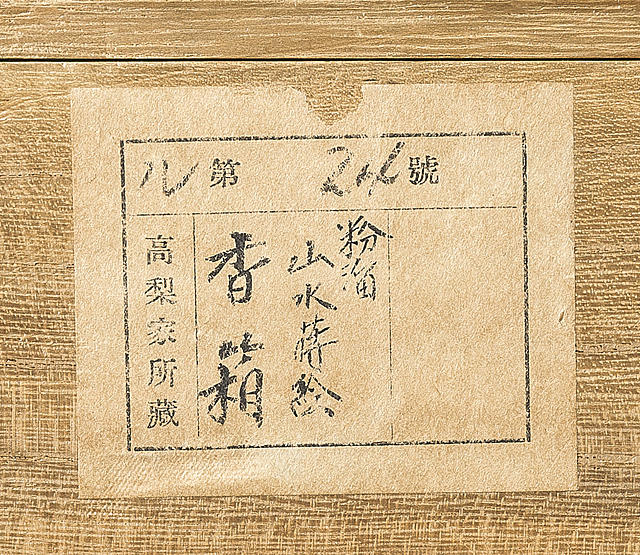 ル第24號
粉溜
山水蒔絵
香箱
高梨家所藏